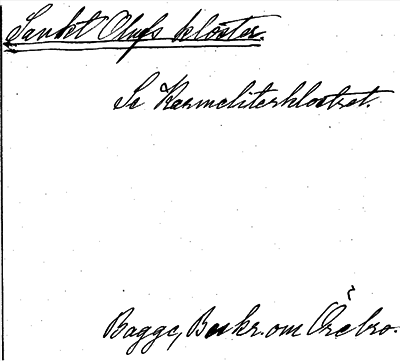 Sankt Olofs kloster.
Se Karmeliterklostret.
Bagge, Beskr. om Örebro.